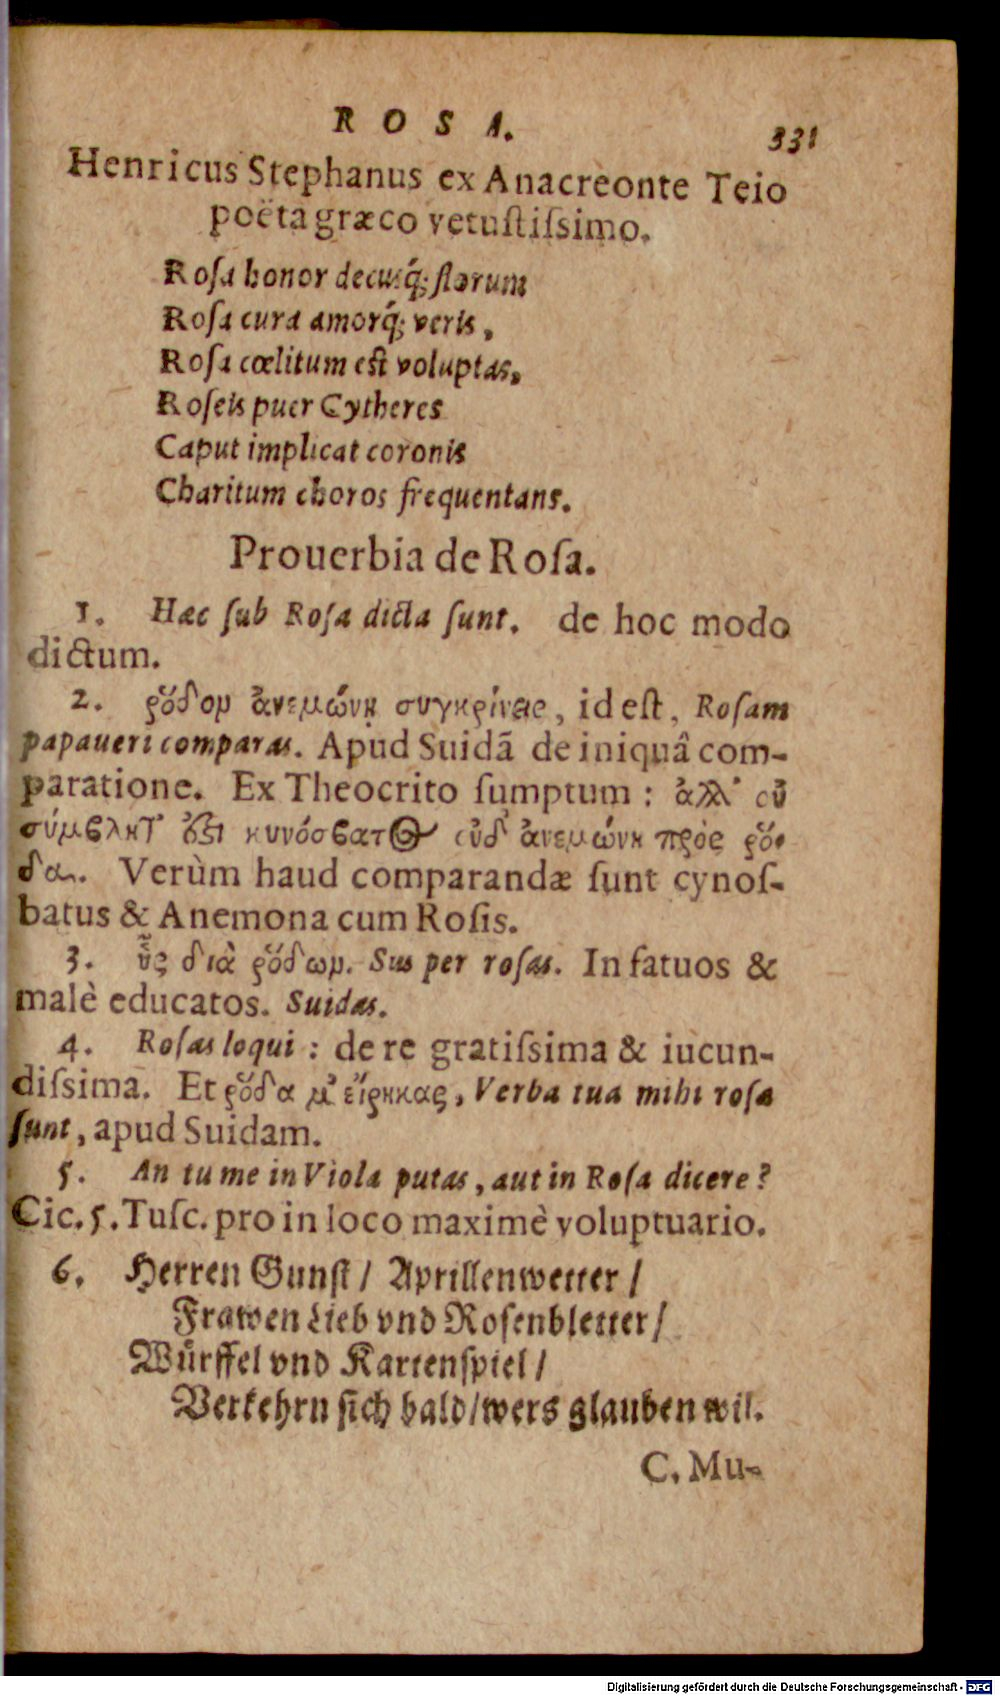 ROSA. 331
Henricus Stephanus ex Anacreonte Teio
poëta græco vetustissimo.
Rosa honor decusq́; florum
Rosa cura amorq́; veris,
Rosa cœlitum est voluptas,
Roseis puer Cytheres
Caput implicat coronis
Charitum choros frequentans.
Prouerbia de Rosa.
1. Hæc sub Rosa dicta sunt. de hoc modo
dictum.
2. ῥόδον ἀνεμώνῃ συγκρίνεις, id est, Rosam
papaueri comparas. Apud Suidã de iniquâ com-
paratione. Ex Theocrito sumptum: ἀλλ' οὐ
σύμβλητ' ἐστι κυνόσβατος οὐδ' ἀνεμώνη πρὸς ῥό-
δα. Verùm haud comparandæ sunt cynos-
batus & Anemona cum Rosis.
3. ὗς διὰ ῥόδων. Sus per rosas. In fatuos &
malè educatos. Suidas.
4. Rosas loqui: de re gratissima & iucun-
dissima. Et ῥόδα μ' εἴρηκας, Verba tua mihi rosa
sunt, apud Suidam.
5. An tu me in Viola putas, aut in Rosa dicere?
Cic. 5. Tusc. pro in loco maximè voluptuario.
6. Herren Gunst / Aprillenwetter /
Frawen Lieb vnd Rosenbletter /
Würffel vnd Kartenspiel /
Verkehrn sich bald / wers glauben wil.
C. Mu-
Digitalisierung gefördert durch die Deutsche Forschungsgemeinschaft - DFG